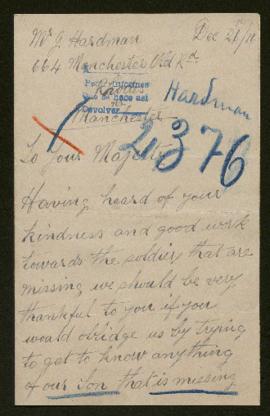 Mr J Hardman Dec 28/16
664 Manchester Old Rd
Manchester
Devolver
Hardman
2376
To Your Majesty
Having heard of your
kindness and good work
towards the soldier that are
missing we should be very
thankful to you if you
would oblidge us by trying
to get to know anything
of our Son that is missing